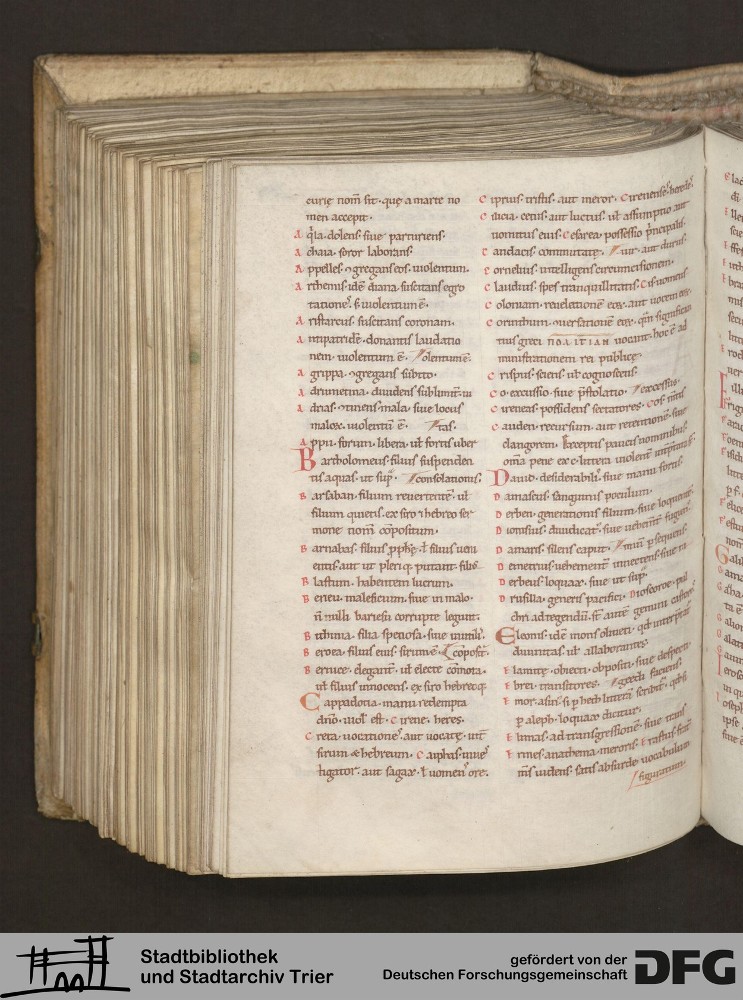 curię nom̄ sit · quę a marte no
men accepit ·
A q̇la · dolens · siue parturiens ·
A chaia · soror laborans ·
A ppelles · ꝯgregans eos · uiolentum ·
A rthemis · idē diana · suscitans egro
tationē · s; uiolentum ē ·
A ristarcus · suscitans coronam ·
A ntipatridē · donantis laudatio
nem · uiolentum ē · olentum ē ·
A grippa · ꝯgregans subito ·
A drumetina · diuidens sublimit̄ · ui
A drias · ꝯtinens mala · siue locus
maloꝝ · uiolentū ē · tas ·
A ppii · forum · libera · ul̄ fortis uber
B artholomeus · filius suspenden
tis aquas · ut sup̄ · consolationis ·
B arsaban · filium reuertentē · ul̄
filium quietis · ex siro ⁊ hebreo ser
mone nom̄ cōpositum ·
B arnabas · filius ꝓph̨ę · ul̄ filius ueni
entis · aut ut pleriq; putant · filius
B lastum · habentem lucrum ·
B erieu · maleficum · siue in malo ·
n̄ nulli bariesu corrupte legunt ·
B ithinia · filia speciosa · siue inutil᷒ ·
B eroea · filius eius · sirum ē · cōposit̄ ·
B ernice · elegant̄ · ul̄ electe cōmota ·
ul̄ filius innocens · ex siro hebreoq;
C appadocia · manu redempta
dn̄o · uiol̄ est · C irene · heres ·
C reta · uocatione᷒ · aut uocatę · utī
sirum & hebreum · C aiphas · inues
tigator · aut sagax · ul̄ uomens ore ·
C iprius · tristis · aut meror · C irenenses · heredes ·
C ilicia · cetus · aut luctus · ul̄ assumptio aut
uomitus eius · C esarea · possessio p̄ncipalis ·
C andacis · commutatę · uir · aut durus ·
C ornelius · intelligens circumcisionem ·
C laudius · spes tranquillitatis · C is · uomens
C oloniam · reuelationē eoꝝ · aut uocem eoꝝ ·
C orinthum · ꝯuersationē eoꝝ · qm̄ significan
tius greci ΠΟΛΙΤΙΑΝ uocant · hoc ē ad
ministrationem rei publicę ·
C rispus · sciens · ul̄ cognoscens ·
C o · excussio · siue p̄stolatio · excessus ·
C ireneas · possidens sectatores · C os · mīs
C auden · recursum · aut retentionē · siue
clangorem · Exceptis paucis nominibus
om̄a pene ex · c · littera uiolent̄ int̄ptata s̄ ·
D auid · desiderabil᷒ · siue manu fortis ·
D amascus · sanguinis poculum ·
D erben · generationis filium · siue loquente ·
D ionisius · diiudicat᷒ · siue uehemt̄ fugiens ·
D amaris · silens caput · mīm ꝑsequens ·
D emetrius · uehement̄ innectens · siue ni
D erbeus · loquax · siue ut sup̄ ·
D rusilla · generis pacifici · D ioscoroe · pul
chri ad regendū · s; aut genuini castores ·
E leonis · idē mons oliueti · qd̄ interp̄tat᷒
diuinitas · ul̄ allaborantes ·
E lamitę · obiecti · oppositi · siue despecti ·
E brei · transitores · gredi faciens ·
E mor · asin᷒ · si ꝑ hec litterā scribit᷒ · qd̄ si
ꝑ aleph · loquax dicitur ·
E limas · ad transgressionē · siue trans
E rmes · anathema · meroris · E rastus · fratē
mīs uidens · satis absurde uocabulum
figuratum ·
Stadtbibliothek
und Stadtarchiv Trier
gefördert von der
Deutschen Forschungsgemeinschaft
DFG